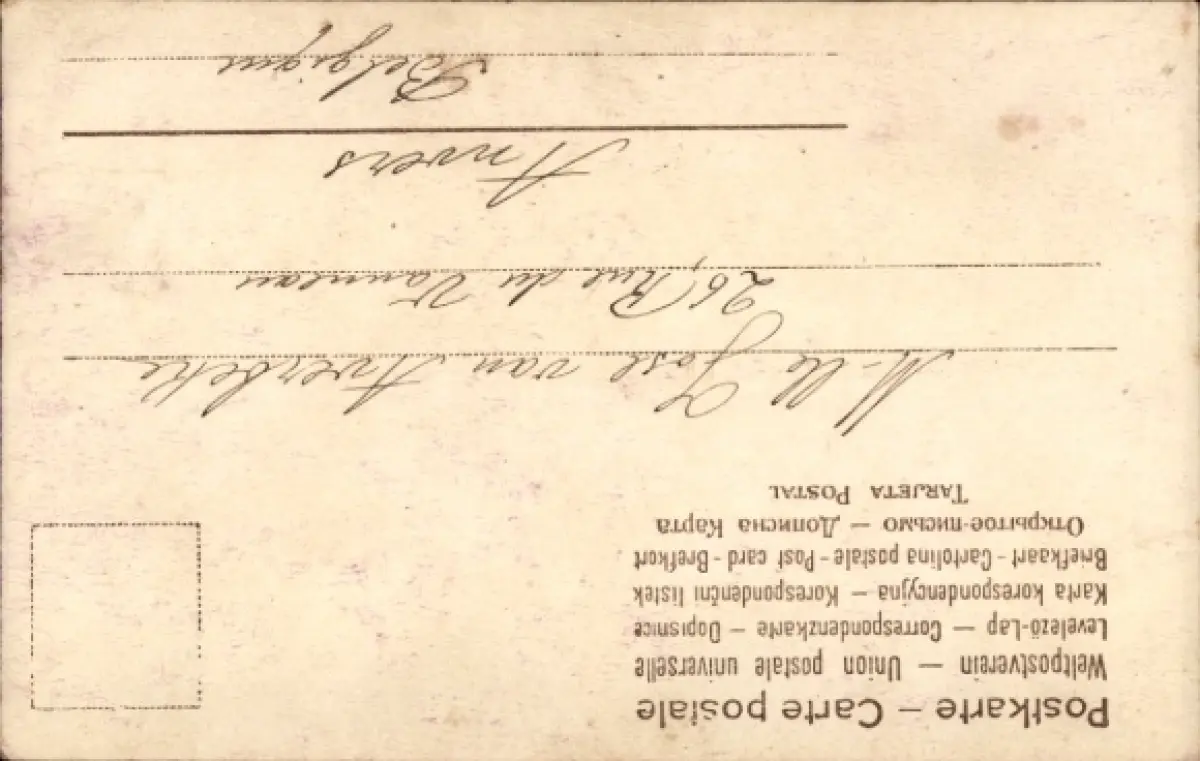 Postkarte – Carte postale
Weltpostverein — Union postale universelle
Levelező-Lap — Correspondenzkarte — Dopisnice
Karta korespondencyjna — Korespondenční listek
Briefkaart - Cartolina postale - Post card - Brefkort
Открытое-письмо — Дописна Карта
TARJETA POSTAL
M-lle José van Averbeke
26, Rue du Vanneau
Anvers
Belgique